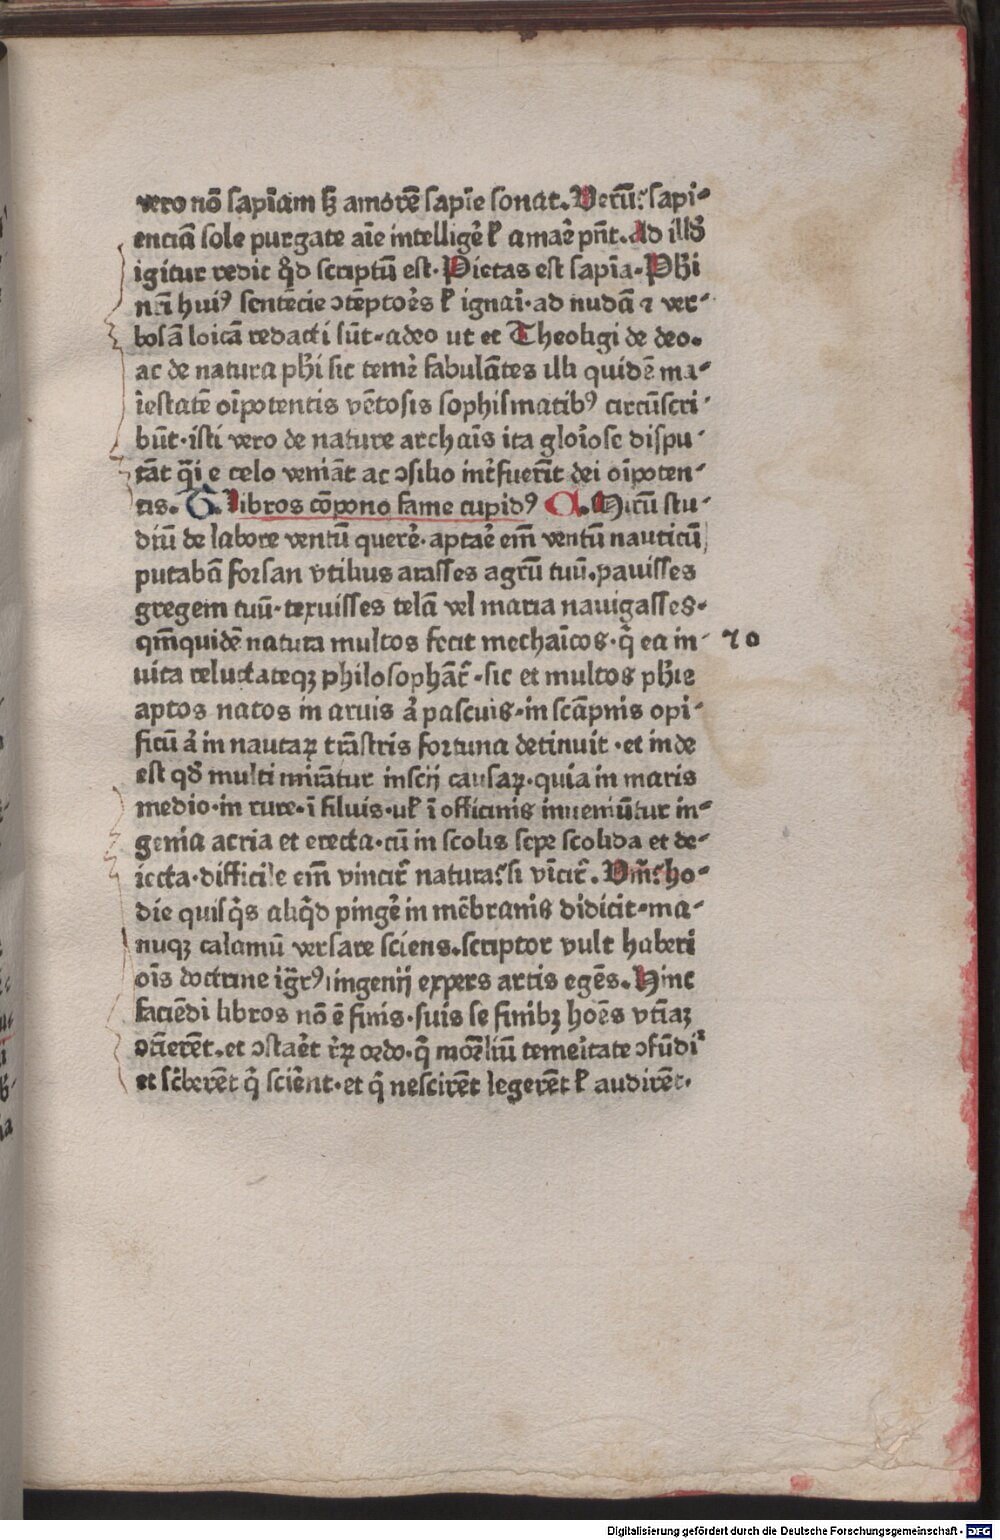 vero nō sapīam sꝫ amorē sapīe sonat. Verū: sapi⸗
enciā sole purgate aīe intelligē̉ ł amaē̉ pn̄t. Ad ill̉d
igitur redit qd̉ scriptū est. Pietas est sapīa. Ph̄i
nr̄i huiꝰ sentēcie ɔtēptoēs ł ignaī. ad nudā ⁊ ver⸗
bosā loicā redacti sūt. adeo ut et Theologi de deo.
ac de natura ph̄i sic temē̉ fabulātes illi quidē ma⸗
iestatē oīpotentis vētosis sophismatibꝰ circūscri⸗
būt. isti vero de nature archaīs ita gloīose dispu⸗
tāt qī e celo veniāt ac ɔsilio inťfuerīt dei oīpoten⸗
tis. G. Libros cōpono fame cupidꝰ A. Mirū stu⸗
diū de labore ventū querē̉. aptaē̉ em̄ ventū nauticū
putabā forsan vtilius arasses agrū tuū. pauisses
gregem tuū. texuisses telā vel maria nauigasses.
qm̄quidē natura multos fecit mechaīcos. q̄ ea in⸗
uita reluctateqꝫ philosophāť. sic et multos ph̄ie
aptos natos in aruis ā pascuis. in scāpnis opi⸗
ficū ā in nautaꝝ trāstris fortuna detinuit. et inde
est qd̉ multi mirātur inscij causaꝝ. quia in maris
medio. in rure. ī siluis. uł ī officinis inueniūtur in⸗
genia acria et erecta. cū in scolis sepe stolida et de⸗
iecta. difficile em̄ vincit̄ natura: si vīcit̄. Vm̄: ho⸗
die quisq̄s aliq̄d pingē̉ in mēbranis didicit. ma⸗
nuqꝫ calamū versare sciens. scriptor vult haberi
oīs doctrine igr̄ꝰ ingenij expers artis egēs. Hinc
faciēdi libros nō ē finis. suis se finibꝫ hoēs vtīaꝫ
ɔtierēt. et ɔstaēt rēꝝ ordo. q̄ morl̄iū temeītate ɔfūdiť
et scb̄erēt q̄ sciēnt. et q̄ nescirēt legerēt ł audirēt.
70
Digitalisierung gefördert durch die Deutsche Forschungsgemeinschaft - DFG